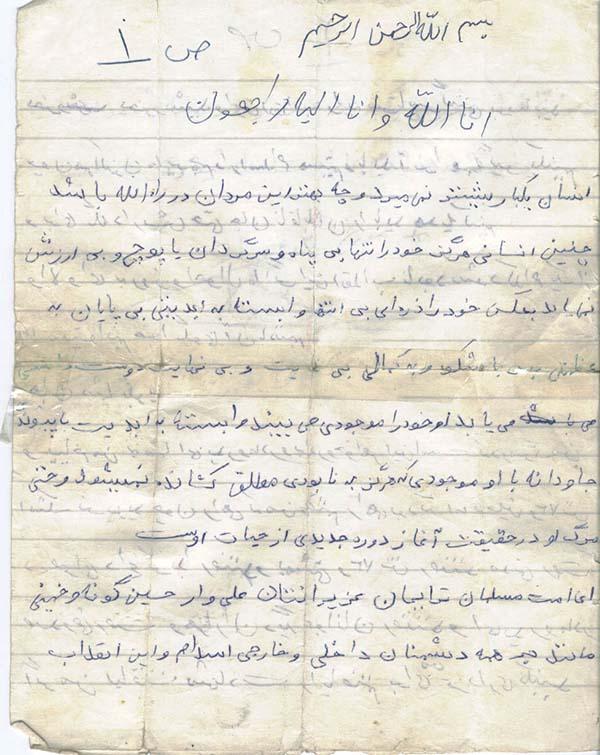 بسم الله الرحمن الرحیم
ص ۱
انا الله وانا الیه راجعون
انسان یکبار بیشتر نمی میرد و چه بهتر این مردان در راه الله باشد
چنینی انسانی هرگز خود را تنها بی پناه و سرگردان یا پوچ و بی ارزش
نمیابد بعکس خود را ذره ای بی انتها وابسته به ابدیتی بی پایان به
عظمتی باشکوه و به کمالی بی و بی نهایت دوست داشتنی
می یابد او خود را موجودی می بیند وابسته به ابدیت با پیوند
جاودانه با او موجودی که هرگز به نابودی مطلق کشانده نمیشود و حتی
مرگ او در حقیقت آغاز دوره جدیدی از حیات اوست
ای امت مسلمان تا پایان عزیز انتان علی وار حسین گونه و خمینی
مانند بر همه دشمنان داخلی و خارجی اسلام و این انقلاب